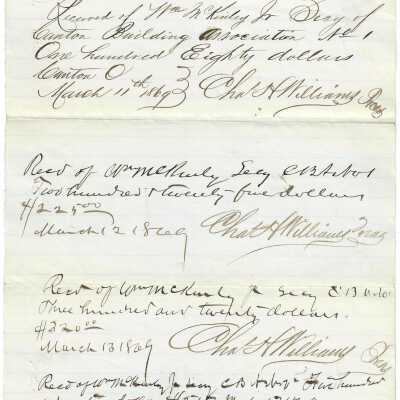 Received of Wm McKinley Jr Secy of
Canton Building Association No 1
One hundred Eighty dollars
Canton O
March 11th, 1869 Chas H Williams Treas
Recd of Wm McKinly Secy C B As No 1
Two hundred & twenty five dollars
$225.00
March 12 1869 Chas H Williams Treas
Recd of Wm McKinly Jr Secy C B
Three hundred and twenty dollars.
$320.00
March 13 1869 Chas H Williams Treas
Recd of Wm McKinly Jr Secy C B Five hundred